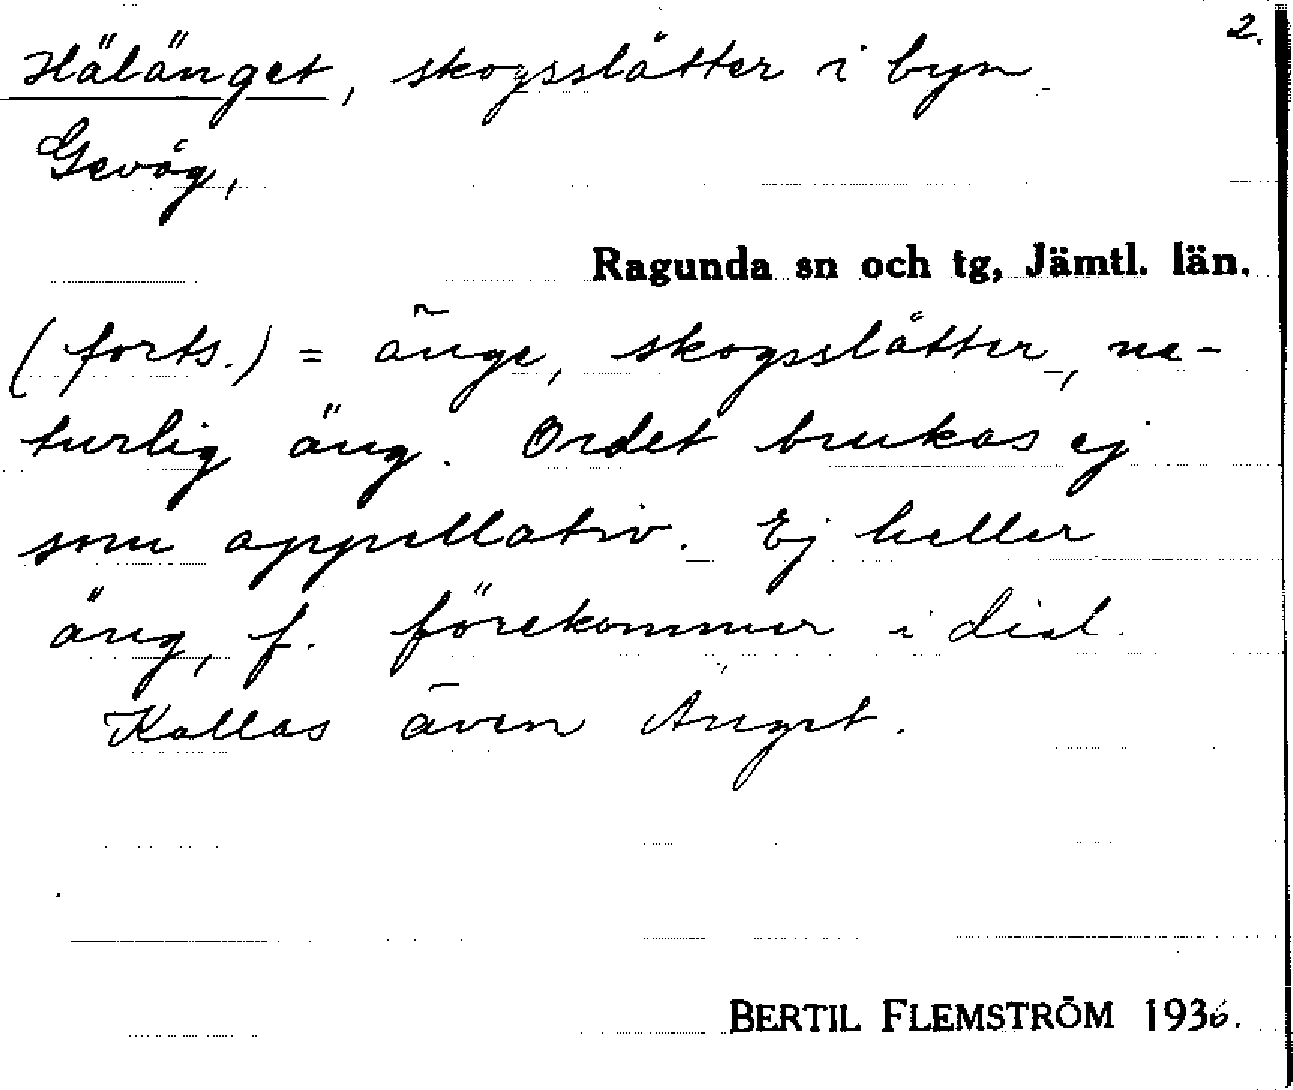 2.
Hälänget, skogsslåtter i byn
Gevåg,
Ragunda sn och tg, Jämtl. län.
(forts.) = änge, skogsslåtter, na-
turlig äng. Ordet brukas ej
som appellativ. Ej heller
äng, f. förekommer i dial.
Kallas även Änget.
BERTIL FLEMSTRÖM 1936.